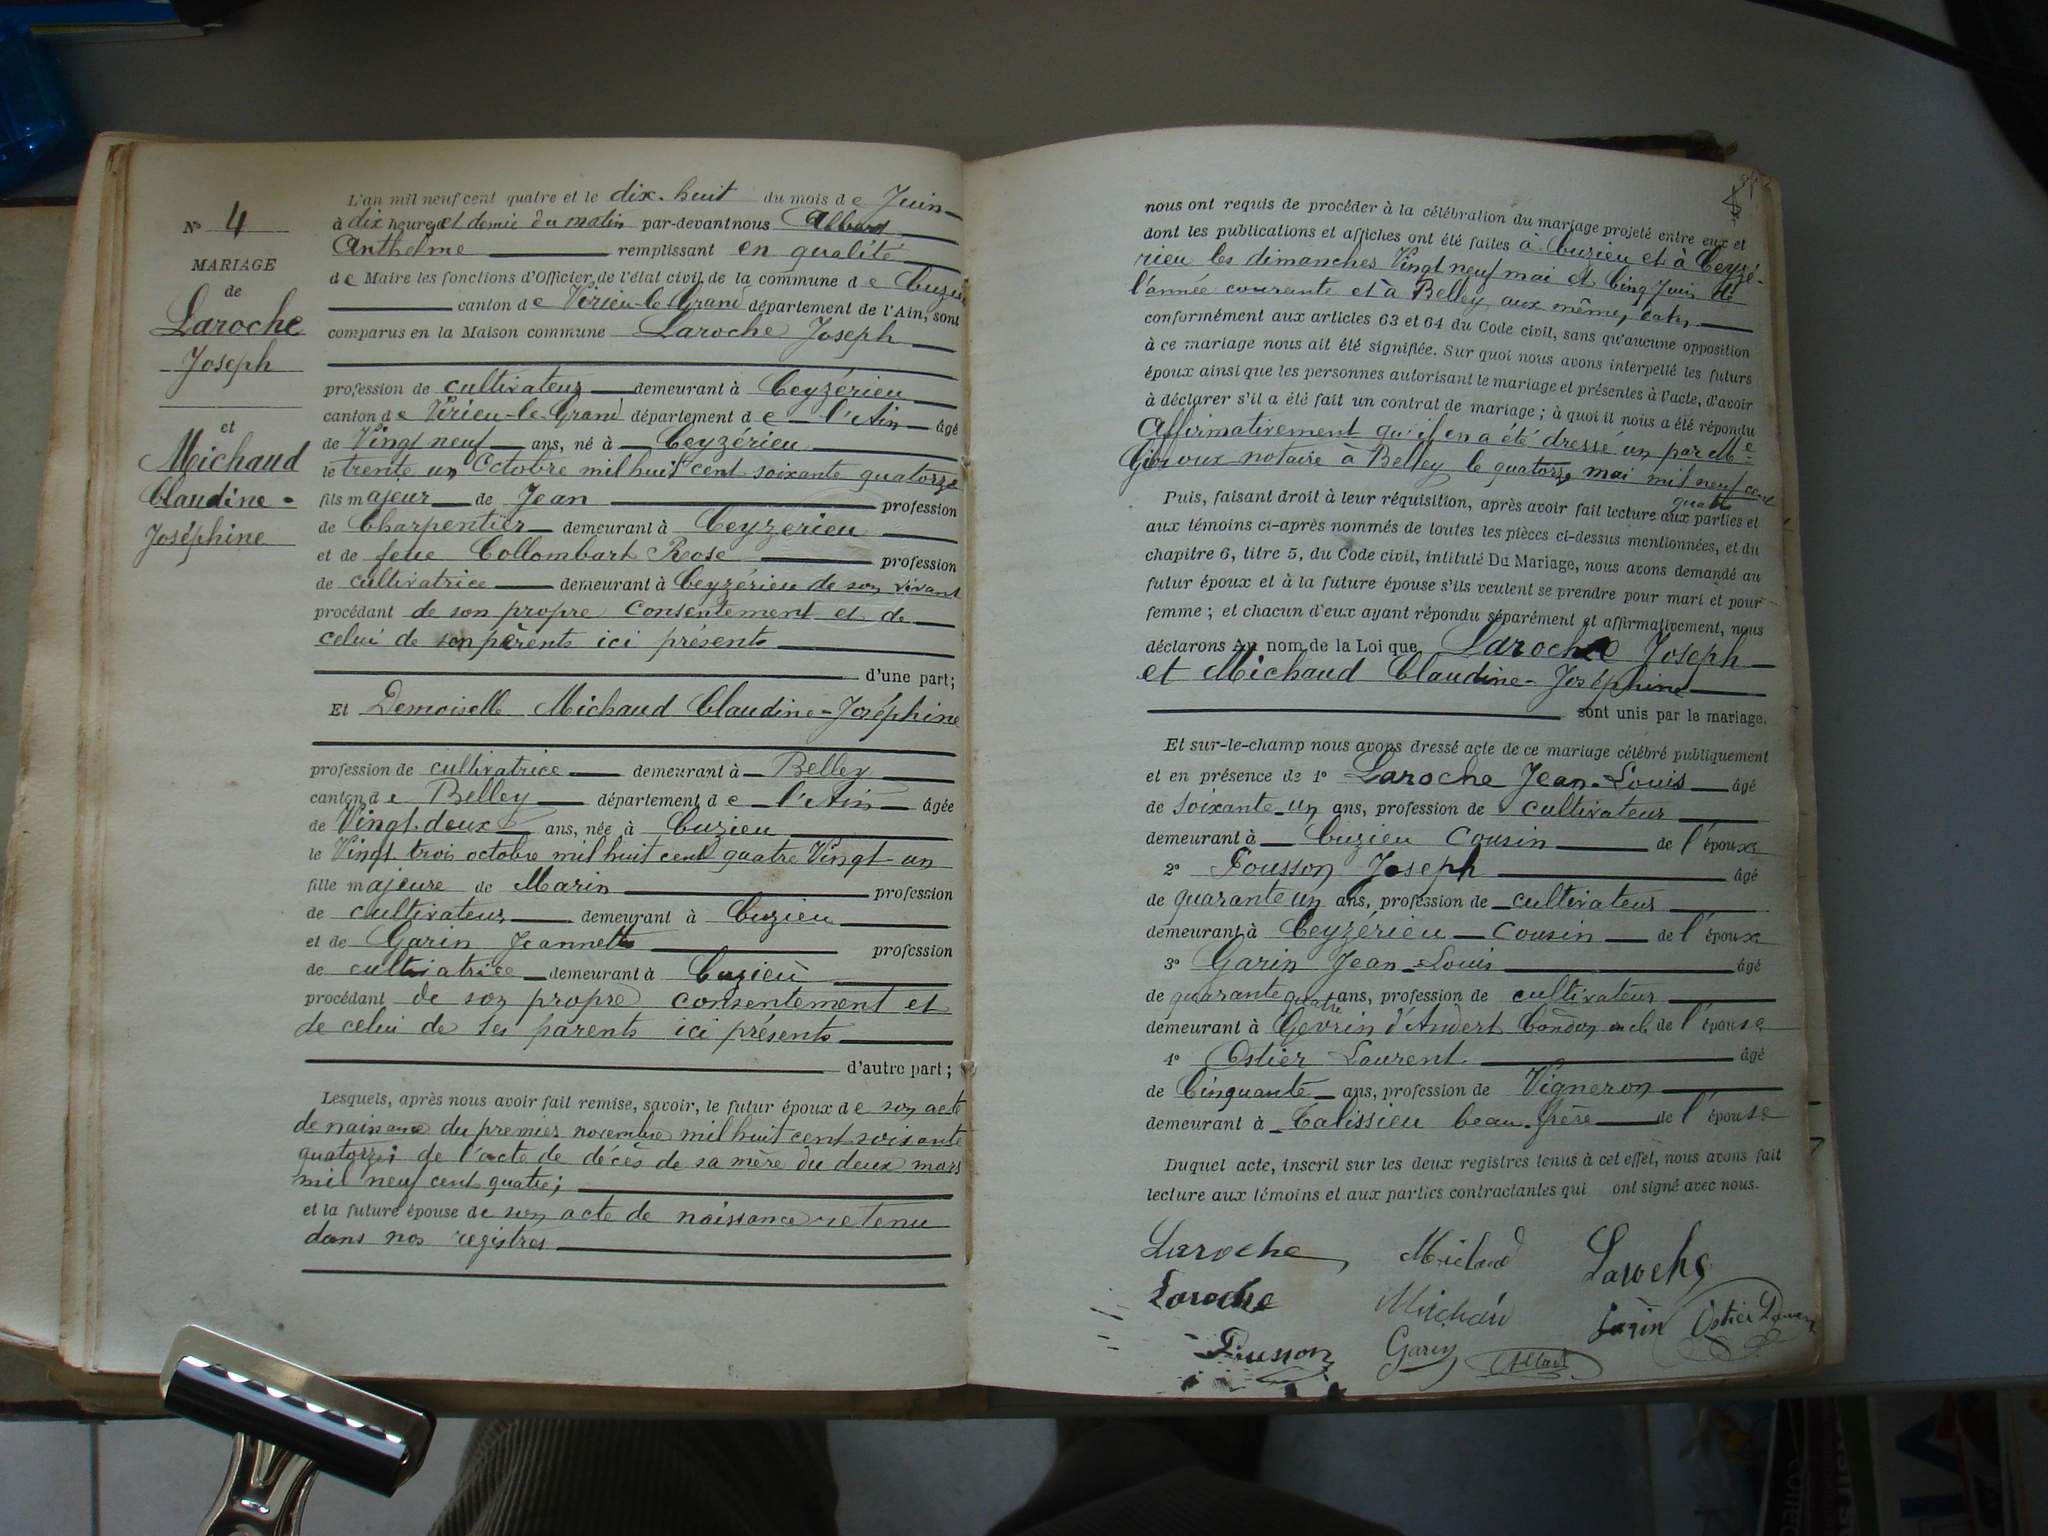 N° 4
MARIAGE
de
Laroche
Joseph
et
Michaud
Claudine-
Joséphine
L'an mil neuf cent quatre et le dix-huit du mois de Juin
à dix heures et demie du matin par-devant nous Allard
Anthelme remplissant en qualité
de Maire les fonctions d'Officier de l'état civil de la commune de Cuzieu
canton de Virieu-le-Grand département de l'Ain, sont
comparus en la Maison commune Laroche Joseph
profession de cultivateur demeurant à Ceyzérieu
canton de Virieu-le-Grand département de l'Ain âgé
de Vingt neuf ans, né à Ceyzérieu
le trente un Octobre mil huit cent soixante quatorze
fils majeur de Jean profession
de Charpentier demeurant à Ceyzérieu
et de feue Collombart Rose profession
de cultivatrice demeurant à Ceyzérieu de son vivant
procédant de son propre consentement et de
celui de son pèrents ici présents
d'une part;
Et Demoiselle Michaud Claudine-Joséphine
profession de cultivatrice demeurant à Belley
canton de Belley département de l'Ain âgée
de Vingt-deux ans, née à Cuzieu
le Vingt trois octobre mil huit cent quatre Vingt-un
fille majeure de Marin profession
de cultivateur demeurant à Cuzieu
et de Garin Jeannette profession
de cultivatrice demeurant à Cuzieu
procédant de son propre consentement et
de celui de ses parents ici présents
d'autre part;
Lesquels, après nous avoir fait remise, savoir, le futur époux de son acte
de naissance du premier novembre mil huit cent soixante
quatorze; de l'acte de décès de sa mère du deux mars
mil neuf cent quatre;
et la future épouse de son acte de naissance retenu
dans nos registres
nous ont requis de procéder à la célébration du mariage projeté entre eux et
dont les publications et affiches ont été faites à Cuzieu et à Ceyzé-
rieu les dimanches Vingt neuf mai et Cinq Juin de
l'année courante et à Belley aux même
conformément aux articles 63 et 64 du Code civil, sans qu'aucune opposition
à ce mariage nous ait été signifiée. Sur quoi nous avons interpellé les futurs
époux ainsi que les personnes autorisant le mariage et présentes à l'acte, d'avoir
à déclarer s'il a été fait un contrat de mariage; à quoi il nous a été répondu
Affirmativement qu'il en a été dressé un par Me
notaire à Belley le quatorze mai mil neuf cent
quatre
Puis, faisant droit à leur réquisition, après avoir fait lecture aux parties et
aux témoins ci-après nommés de toutes les pièces ci-dessus mentionnées, et du
chapitre 6, titre 5, du Code civil, intitulé Du Mariage, nous avons demandé au
futur époux et à la future épouse s'ils veulent se prendre pour mari et pour
femme; et chacun d'eux ayant répondu séparément et affirmativement, nous
déclarons Au nom de la Loi que Laroche Joseph
et Michaud Claudine-Joséphine
sont unis par le mariage.
Et sur-le-champ nous avons dressé acte de ce mariage célébré publiquement
et en présence de 1° Laroche Jean-Louis âgé
de soixante-un ans, profession de cultivateur
demeurant à Cuzieu cousin de l'époux
2° Pousson Joseph âgé
de quarante un ans, profession de cultivateur
demeurant à Ceyzérieu cousin de l'époux
3° Garin Jean-Louis âgé
de quarante quatre ans, profession de cultivateur
demeurant à Gevrin d'Andert Condon oncle de l'épouse
4° Ostier Laurent âgé
de Cinquante ans, profession de Vigneron
demeurant à Talissieu beau-frère de l'épouse
Duquel acte, inscrit sur les deux registres tenus à cet effet, nous avons fait
lecture aux témoins et aux parties contractantes qui ont signé avec nous.
Laroche Michaud Laroche
Laroche Michaud Garin Ostier Laurent
Pousson Garin Allard